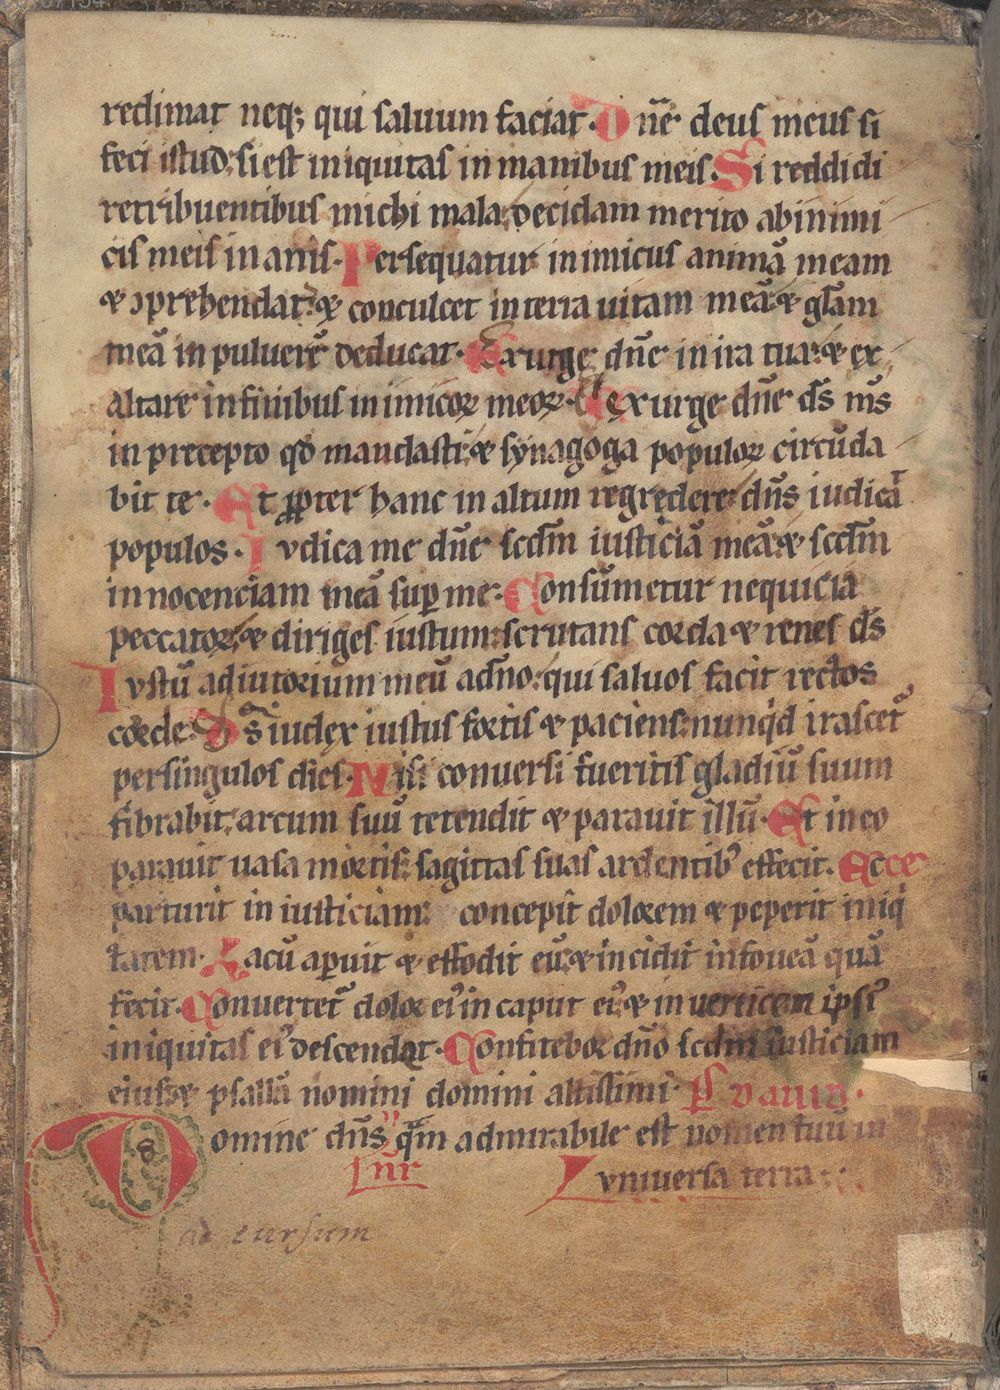 redimat neq; qui saluum faciat. Dn̄e deus meus si
feci istud: si est iniquitas in manibus meis. Si reddidi
retribuentibus michi mala: decidam merito ab inimi
cis meis inanis. Persequatur inimicus animā meam
& ꝯprehendat: & conculcet in terra uitam meā: & glām
meā in puluerē deducat. Exurge dn̄e in ira tua: & ex
altare in finibus inimicoꝝ meoꝝ. Et exurge dn̄e ds̄ ms̄
in precepto qd̄ mandasti: & synagoga populoꝝ circūda
bit te. Et ꝓpter hanc in altum regredere: dn̄s iudicāt
populos. Iudica me dn̄e scd̄m iusticiā meā: & scd̄m
innocenciam meā suꝑ me. Consumetur nequicia
peccatoꝝ: & diriges iustum: scrutans corda & renes ds̄
Iustū adiutorium meū ad̄no: qui saluos facit rectos
corde. Ds̄ iudex iustus fortis & paciens: nunqd irascet᷑
per singulos dies. Nisi conuersi fueritis gladiū suum
uibrabit: arcum suū tetendit & parauit illū. Et in eo
parauit uasa mortis: sagittas suas ardentib᷒ effecit. Ecce
parturit in iusticiam: concepit dolorem & peperit iniq
tatem. Lacū aꝑuit & effodit eū: & incidit in foueā quā
fecit. Conuertet᷑ dolor ei᷒ in caput ei᷒: & in uerticem ipsi᷒
iniquitas ei᷒ descendet. Confitebor dn̄o scd̄m iusticiam
eius: & psallā nomini domini altissimi. Ps̄ dauid.
Domine dn̄s nr̄ qm̄ admirabile est nomen tuū in
uniuersa terra
ad cursum